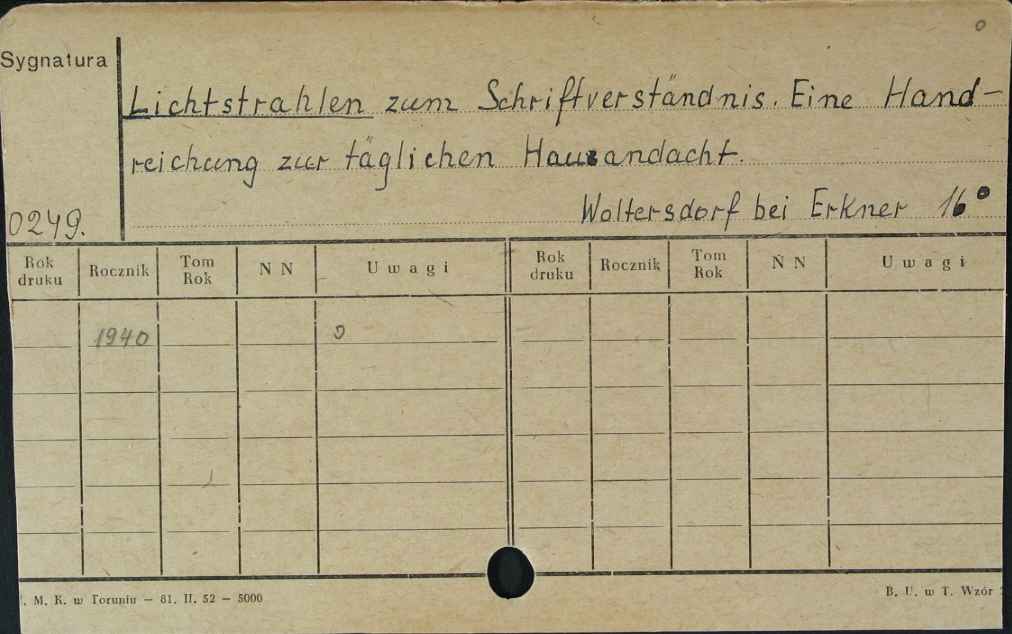 0
Sygnatura
Lichtstrahlen zum Schriftverständnis. Eine Hand-
reichung zur täglichen Hausandacht.
0249. Woltersdorf bei Erkner 16°
Rok druku Rocznik Tom Rok N N Uwagi Rok druku Rocznik Tom Rok N N Uwagi
1940 0
. M. K. w Toruniu — 81. II. 52 — 5000 B. U. w T. Wzór